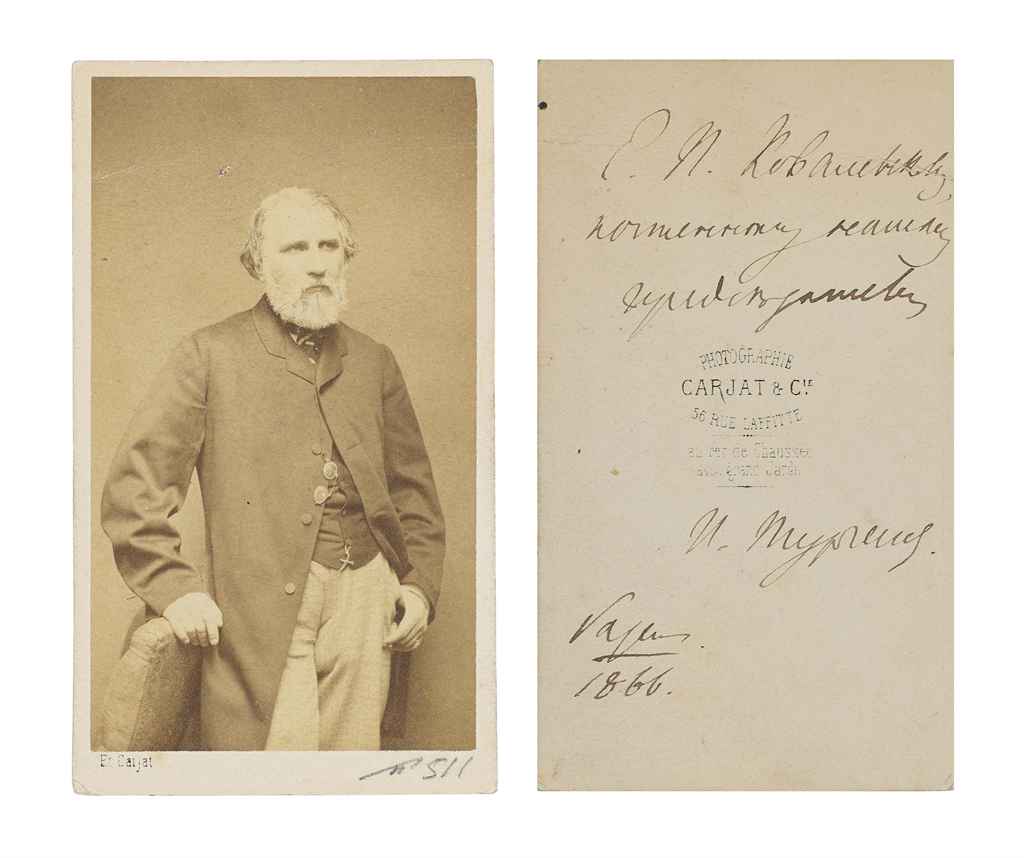 Et. Carjat
Е. П. Ковалевскому,
почтенному нашему
председателю
PHOTOGRAPHIE
CARJAT & Cie
56 RUE LAFFITTE
au rez de Chaussée
grand Jardin
И. Тургенев.
Баден.
1866.